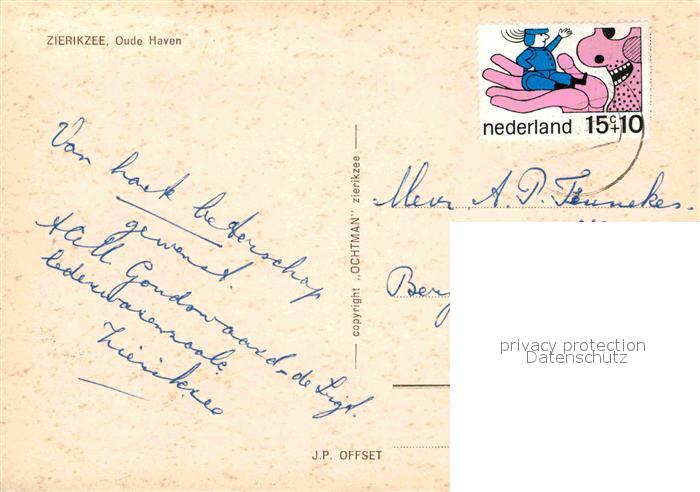 ZIERIKZEE, Oude Haven
nederland 15c+10
Van hart beterschap
gewenst.
Goudswaard-de Ligt.
lederwarenzaak.
Zierikzee
copyright „OCHTMAN" zierikzee
Mevr A. P. Tennekes.
Berg
privacy protection
Datenschutz
J.P. OFFSET